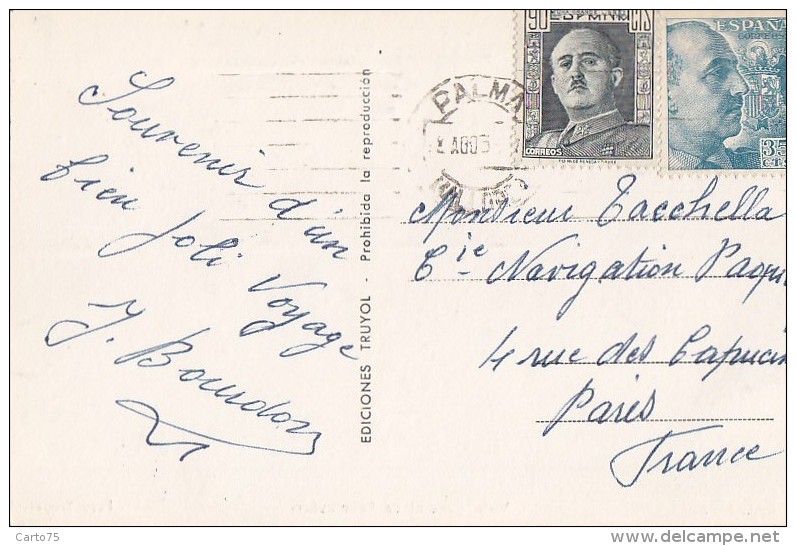 Souvenir d'un
bien joli voyage
J. Bourdon
EDICIONES TRUYOL - Prohibida la reproducción
PALMA
2 AGO 5
90 ESPAÑA CTS
CORREOS
ESPAÑA
CORREOS
35
CTS
Monsieur Tacchella
Cie Navigation Paqu
4 rue des Capucin
Paris
France
Carto75
www.delcampe.net